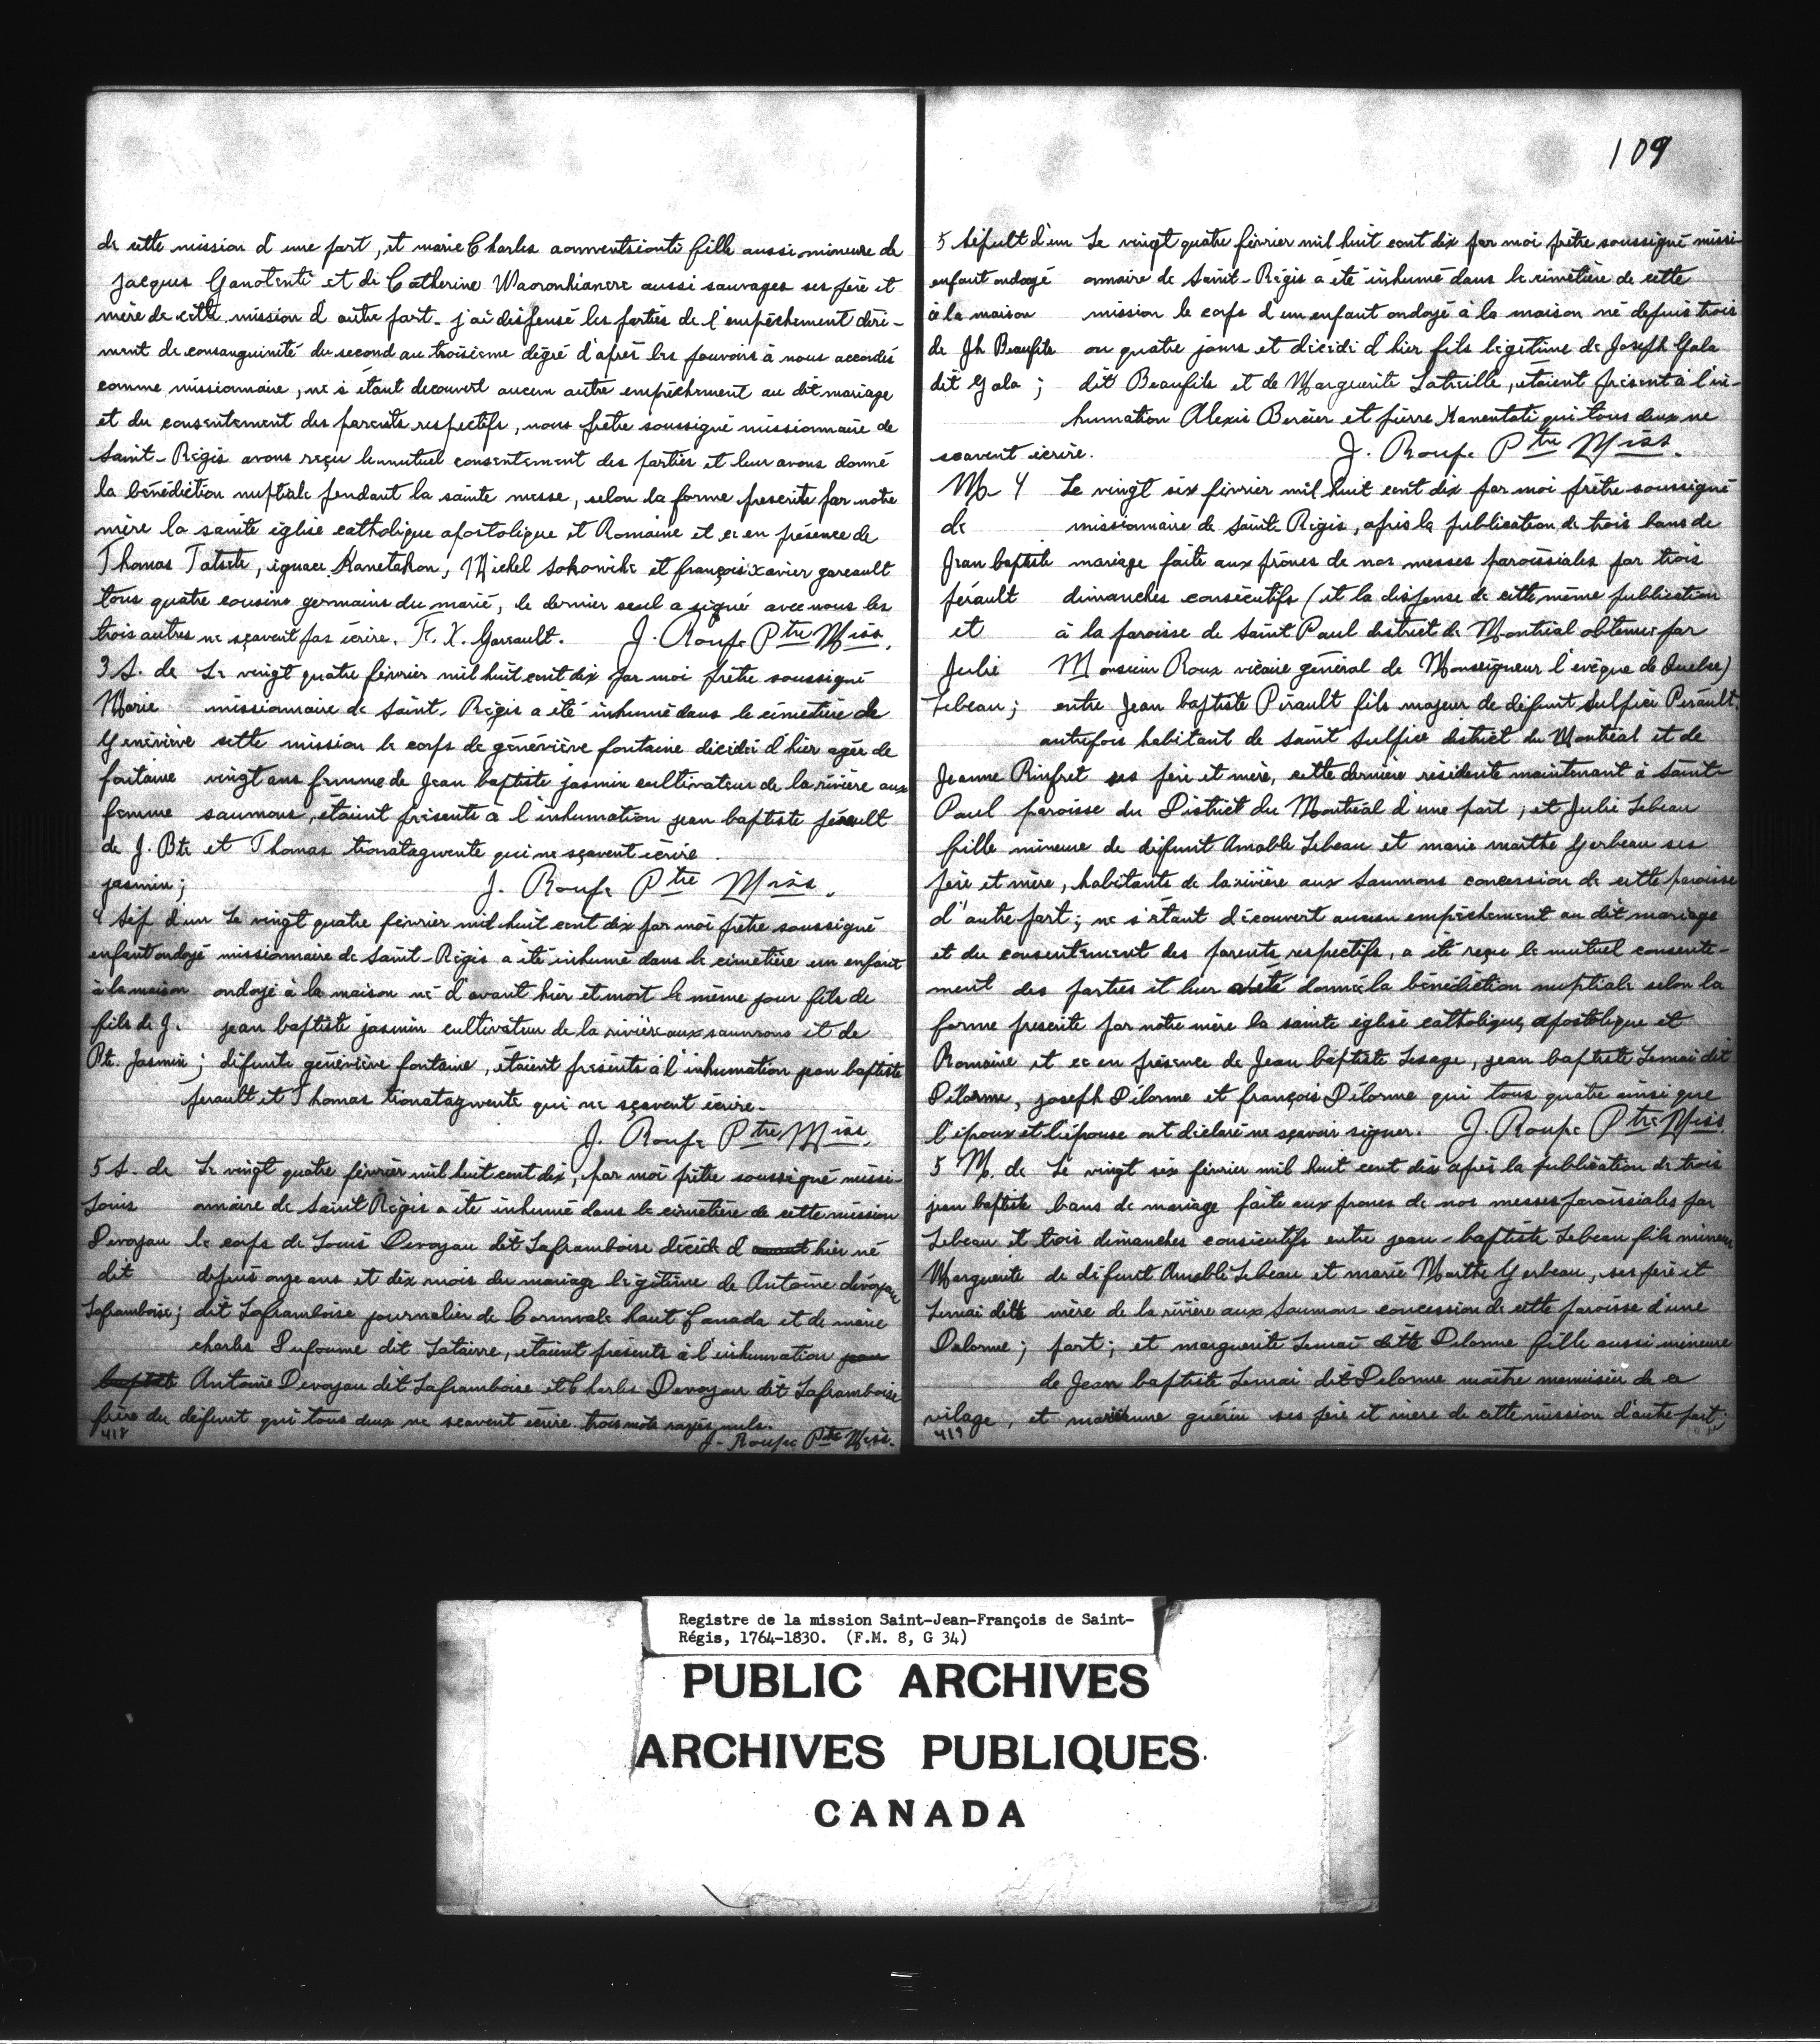 de cette mission d'une part, et marie Charles aonwentsionti fille aussi mineure de
Jacques Ganotenti et de Catherine Waoronhianere aussi sauvages ses père et
mère de cette mission d'autre part. j'ai dispensé les parties de l'empêchement diri-
ment de consanguinité du second au troisieme dégré d'après les pouvoirs à nous accordés
comme missionnaire, ne s'étant decouvert aucun autre empêchement au dit mariage
et du consentement des parents respectifs, nous prêtre soussigné missionnaire de
Saint-Régis avons reçu le mutuel consentement des parties et leur avons donné
la bénédiction nuptiale pendant la sainte messe, selon la forme prescrite par notre
mère la sainte église catholique apostolique et Romaine et ce en présence de
Thomas Tatsete, ignace Kanetahon, Michel Sokowihe et françois xavier gareault
tous quatre cousins germains du marié, le dernier seul a signé avec nous les
trois autres ne sçavent pas écrire. F. X. Gareault. J. Roupe Ptre Miss.
3 S. de Le vingt quatre février mil huit cent dix par moi prêtre soussigné
Marie missionnaire de Saint-Régis a été inhumé dans le cimetière de
Geneviève cette mission le corps de généviève fontaine décidée d'hier agée de
fontaine vingt ans femme de Jean baptiste jasmin cultivateur de la rivière aux
femme saumons, étaient présents à l'inhumation jean baptiste pérault
de J. Bte et Thomas tionatagwente qui ne sçavent écrire.
jasmin; J. Roupe Ptre Miss.
4 Sép d'un Le vingt quatre février mil huit cent dix par moi prêtre soussigné
enfant ondoyé missionnaire de Saint-Régis a été inhumé dans le cimetière un enfant
à la maison ondoyé à la maison né d'avant hier et mort le même jour fils de
fils de J. jean baptiste jasmin cultivateur de la rivière aux saumons et de
Bte. Jasmin; défunte généviève fontaine, étaient présents à l'inhumation jean baptiste
perault et Thomas tionatagwente qui ne sçavent écrire.
J. Roupe Ptre Miss.
5 S. de Le vingt quatre février mil huit cent dix, par moi prêtre soussigné missi-
Louis onnaire de Saint Régis a été inhumé dans le cimetière de cette mission
Devoyau le corps de Louis Devoyau dit Laframboise décidé d'avant hier né
dit depuis onze ans et dix mois du mariage légitime de Antoine devoyau
Laframboise; dit Laframboise journalier de Cornwale haut Canada et de marie
charles Dufourne dit Latairre, étaient présents à l'inhumation jean
baptiste Antoine Devoyau dit Laframboise et Charles Devoyau dit Laframboise
frère du défunt qui tous deux ne scavent écrire. trois mots rayés nuls.
418 J. Roupe Ptre Miss.
109
5 Sépult d'un Le vingt quatre février mil huit cent dix par moi prêtre soussigné missi-
enfant ondoyé onnaire de Saint-Régis a été inhumé dans le cimetière de cette
à la maison mission le corps d'un enfant ondoyé à la maison né depuis trois
de Jh Beaufils ou quatre jours et décidé d'hier fils légitime de Joseph Gala
dit Gala; dit Beaufils et de Marguerite Latreille, étaient présent à l'in-
humation Alexis Bercier et pierre Kanentoti qui tous deux ne
scavent écrire. J. Roupe Ptre Miss.
M. 4 Le vingt six février mil huit cent dix par moi prêtre soussigné
de missionnaire de Saint-Régis, après la publication de trois bans de
Jean baptiste mariage faite aux prônes de nos messes paroissiales par trois
pérault dimanches consécutifs (et la dispense de cette même publication
et à la paroisse de Saint Paul district de Montréal obtenue par
Julie Monsieur Roux vicaire général de Monseigneur l'evêque de Quebec)
Lebeau; entre Jean baptiste Pérault fils majeur de défunt Sulpice Pérault
autrefois habitant de Saint Sulpice district du Montréal et de
Jeanne Rinfret ses père et mère, cette dernière résidente maintenant à Saint-
Paul paroisse du District du Montréal d'une part; et Julie Lebeau
fille mineure de défunt Amable Lebeau et marie marthe Gerbeau ses
père et mère, habitants de la rivière aux Saumons concession de cette paroisse
d'autre part; ne s'étant découvert aucun empêchement au dit mariage
et du consentement des parents respectifs, a été reçu le mutuel consente-
ment des parties et leur a été donnée la bénédiction nuptiale selon la
forme prescrite par notre mère la sainte église catholique, apostolique et
Romaine et ce en présence de Jean baptiste Lesage, jean baptiste Lemai dit
Délorme, joseph Délorme et françois Délorme qui tous quatre ainsi que
l'époux et l'épouse ont déclaré ne sçavoir signer. J. Roupe Ptre Miss.
5 M. de Le vingt six février mil huit cent dix après la publication de trois
jean baptiste bans de mariage faite aux prones de nos messes paroissiales par
Lebeau et trois dimanches consécutifs entre jean-baptiste Lebeau fils mineur
Marguerite de défunt Amable Lebeau et marie Marthe Gerbeau, ses père et
Lemai ditte mère de la rivière aux Saumons concession de cette paroisse d'une
Delorme; part; et marguerite Lemai ditte Delorme fille aussi mineure
de Jean baptiste Lemai dit Delorme maitre menuisier de ce
vilage, et marieanne guérin ses père et mere de cette mission d'autre part;
419
Registre de la mission Saint-Jean-François de Saint-
Régis, 1764-1830. (F.M. 8, G 34)
PUBLIC ARCHIVES
ARCHIVES PUBLIQUES
CANADA